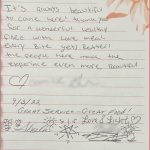 It's always beautiful
to come here! thank you
for a wonderful healthy
place with love meal!
Every Bite gets better!
the people here make the
experience even more Beautiful
9/3/22
Great Service - Great Food!